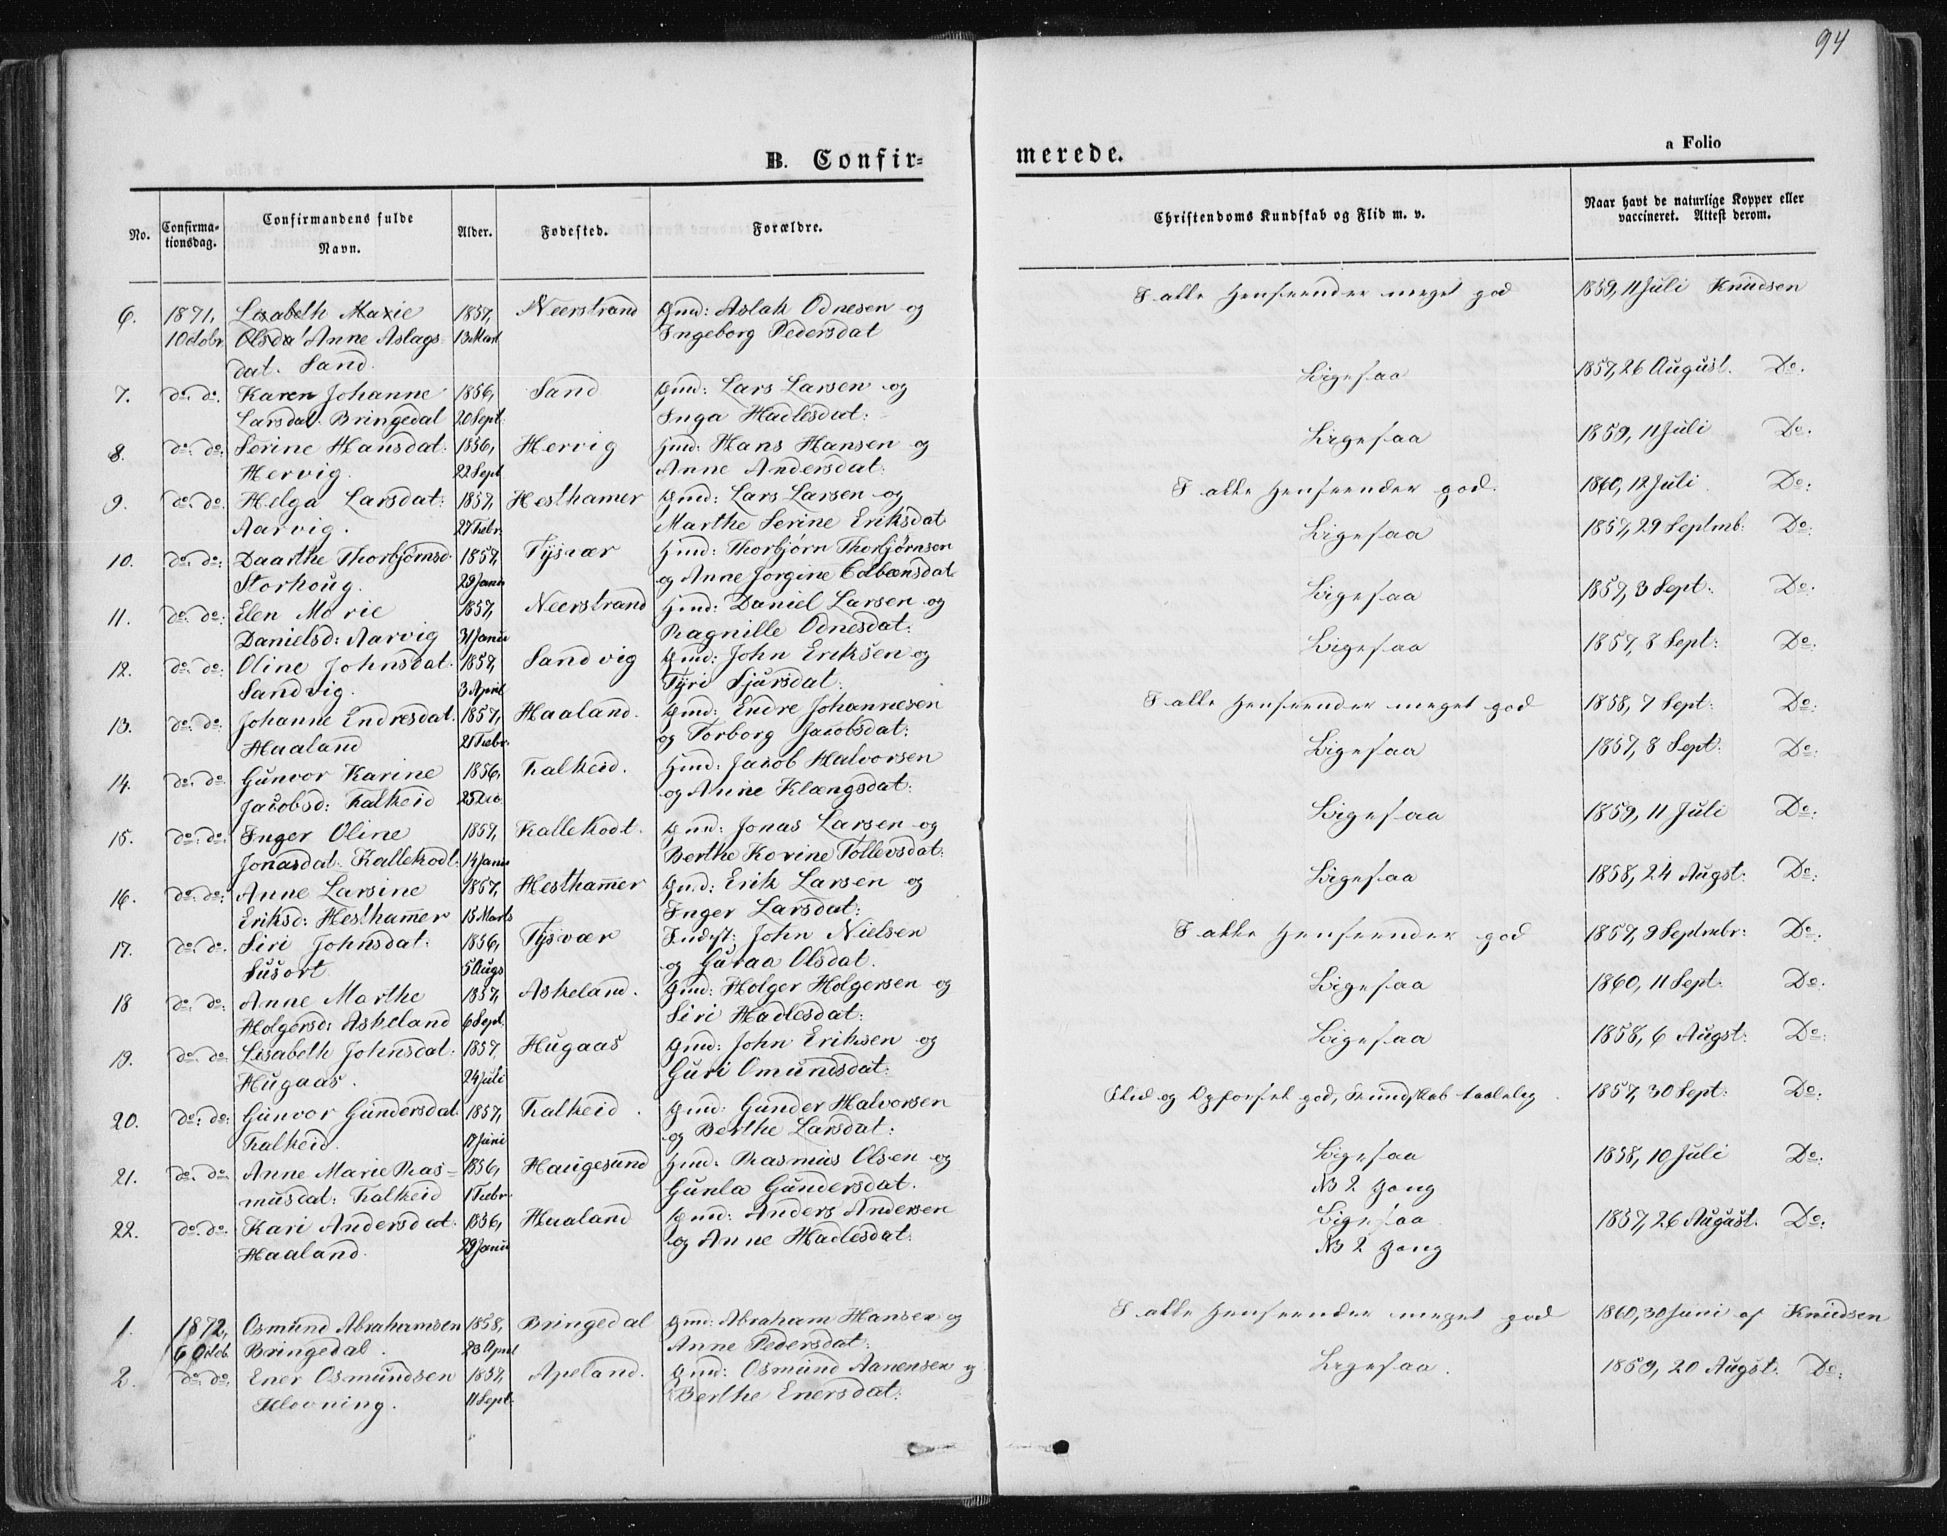 94
B. Confirmerede.
a Folio
No.
Confirmationsdag.
Confirmandens fulde Navn.
Alder.
Fødested.
Forældre.
Christendoms Kundskab og Flid m. v.
Naar havt de naturlige Kopper eller vaccineret. Attest derom.
6. 1871, Lisabeth Maxie 1857, Neerstrand Gmd: Aslak Odnesen og I alle Henseender meget god 1859, 11 Juli Knudsen
1 Octobr Olsda! Anne Aslags 13 Mart Ingeborg Pedersdat
dat. Sand.
7. do. do. Karen Johanne 1856, Sand Gmd: Lars Larsen og Ligesaa 1857, 26 August. Do.
Larsdat. Bringedal 20 Sept. Inga Hadlesdat:
8. do. do: Serine Hansdat: 1856, Hervig Hmd: Hans Hansen og Ligesaa 1859, 11 Juli Do.
Hervig. 22 Sept Anne Andersdat:
9. do. do. Helga Larsdat: 1857, Hesthamer Gmd: Lars Larsen og I alle Henseender god. 1860, 12 Juli Do:
Aarvig. 27 Febr. Marthe Serine Eriksdat
10. do. do: Daarthe Thorbjørnsd. 1857, Tysvær Hmd: Thorbjørn Thorbjørnsen Ligesaa 1857, 29 Septmb. Do:
Storhoug. 29 Janu og Anne Jorgine Edbænsdat
11. do. do: Elen Marie 1857, Neerstrand Hmd: Daniel Larsen og Ligesaa 1857, 3 Sept: Do:
Danielsd: Aarvig 31 Janu Ragnille Odnesdat:
12. do. do: Oline Johnsdat. 1857, Sandvig Gmd: John Eriksen og Ligesaa 1857, 8 Sept: Do:
Sandvig. 3 April Tyri Sjursdat:
13. do. do: Johanne Endresdat. 1857, Haaland. Gmd: Endre Johannesen I alle Henseender meget god 1858, 7 Sept: Do:
Haaland 21 Febr. og Torborg Jacobsdat:
14. do. do: Gunvor Karine 1856, Falkeid. Hmd: Jacob Halvorsen Ligesaa 1857, 8 Sept: Do:
Jacobsd: Falkeid 25 Dec. og Anne Klængsdat:
15. do: do: Inger Oline 1857, Kallekodt. Gmd: Jonas Larsen og Ligesaa 1859, 11 Juli Do:
Jonasdat: Kallekodt. 14 Janu Berthe Korine Tollevsdat:
16. do. do: Anne Larsine 1857, Hesthammer Gmd: Erik Larsen og Ligesaa 1858, 24 Augst: Do:
Eriksd: Hesthammer 15 Marts Inger Larsdat:
17. do. do: Siri Johnsdat: 1856, Tysvær Inderst: John Nielsen I alle Henseender god 1857, 9 Septmbr: Do:
Susort 5 Augs og Guraa Olsdat.
18 do. do: Anne Marthe 1857, Askeland. Gmd: Holger Holgersen og Ligesaa 1860, 11 Sept: Do.
Holgersd: Askeland 6 Sept. Siri Hadlesdat:
19. do. do. Lisabeth Johnsdat: 1857, Hugaas Gmd: John Eriksen og Ligesaa 1858, 6 Augst: Do:
Hugaas. 24 Juli Guri Omundsdat:
20. do: do: Gunvor Gundersdat. 1857, Falkeid. Gmd: Gunder Halvorsen Flid og Opførsel god, Kundskab taalelig. 1857, 30 Sept: Do:
Falkeid. Juni og Berthe Larsdat:
21. do. do. Anne Marie Ras- 1856, Haugesund Hmd: Rasmus Olsen og Ligesaa 1858, 10 Juli Do:
musdat: Falkeid 1 Febr. Gunla Gundersdat. NB 2 Gang
22. do. do: Kari Andersdat. 1856, Haaland Gmd: Anders Andersen Ligesaa 1857, 26 August. Do:
Haaland. 29 Janu og Anne Hadlesdat: NB 2 Gang
1. 1872, Osmund Abrahamsen 1858, Bringedal Gmd: Abraham Hansen og I alle Henseender meget god 1860, 30 Juni af Knudsen
6 Octob. Bringedal. 23 April Anne Pedersdat:
2. do. do. Ener Osmundsen 1857, Apeland. Gmd: Osmund Aanensen og Ligesaa. 1859, 20 Augst. Do:
Klovning. 11 Sept. Berthe Enersdat: